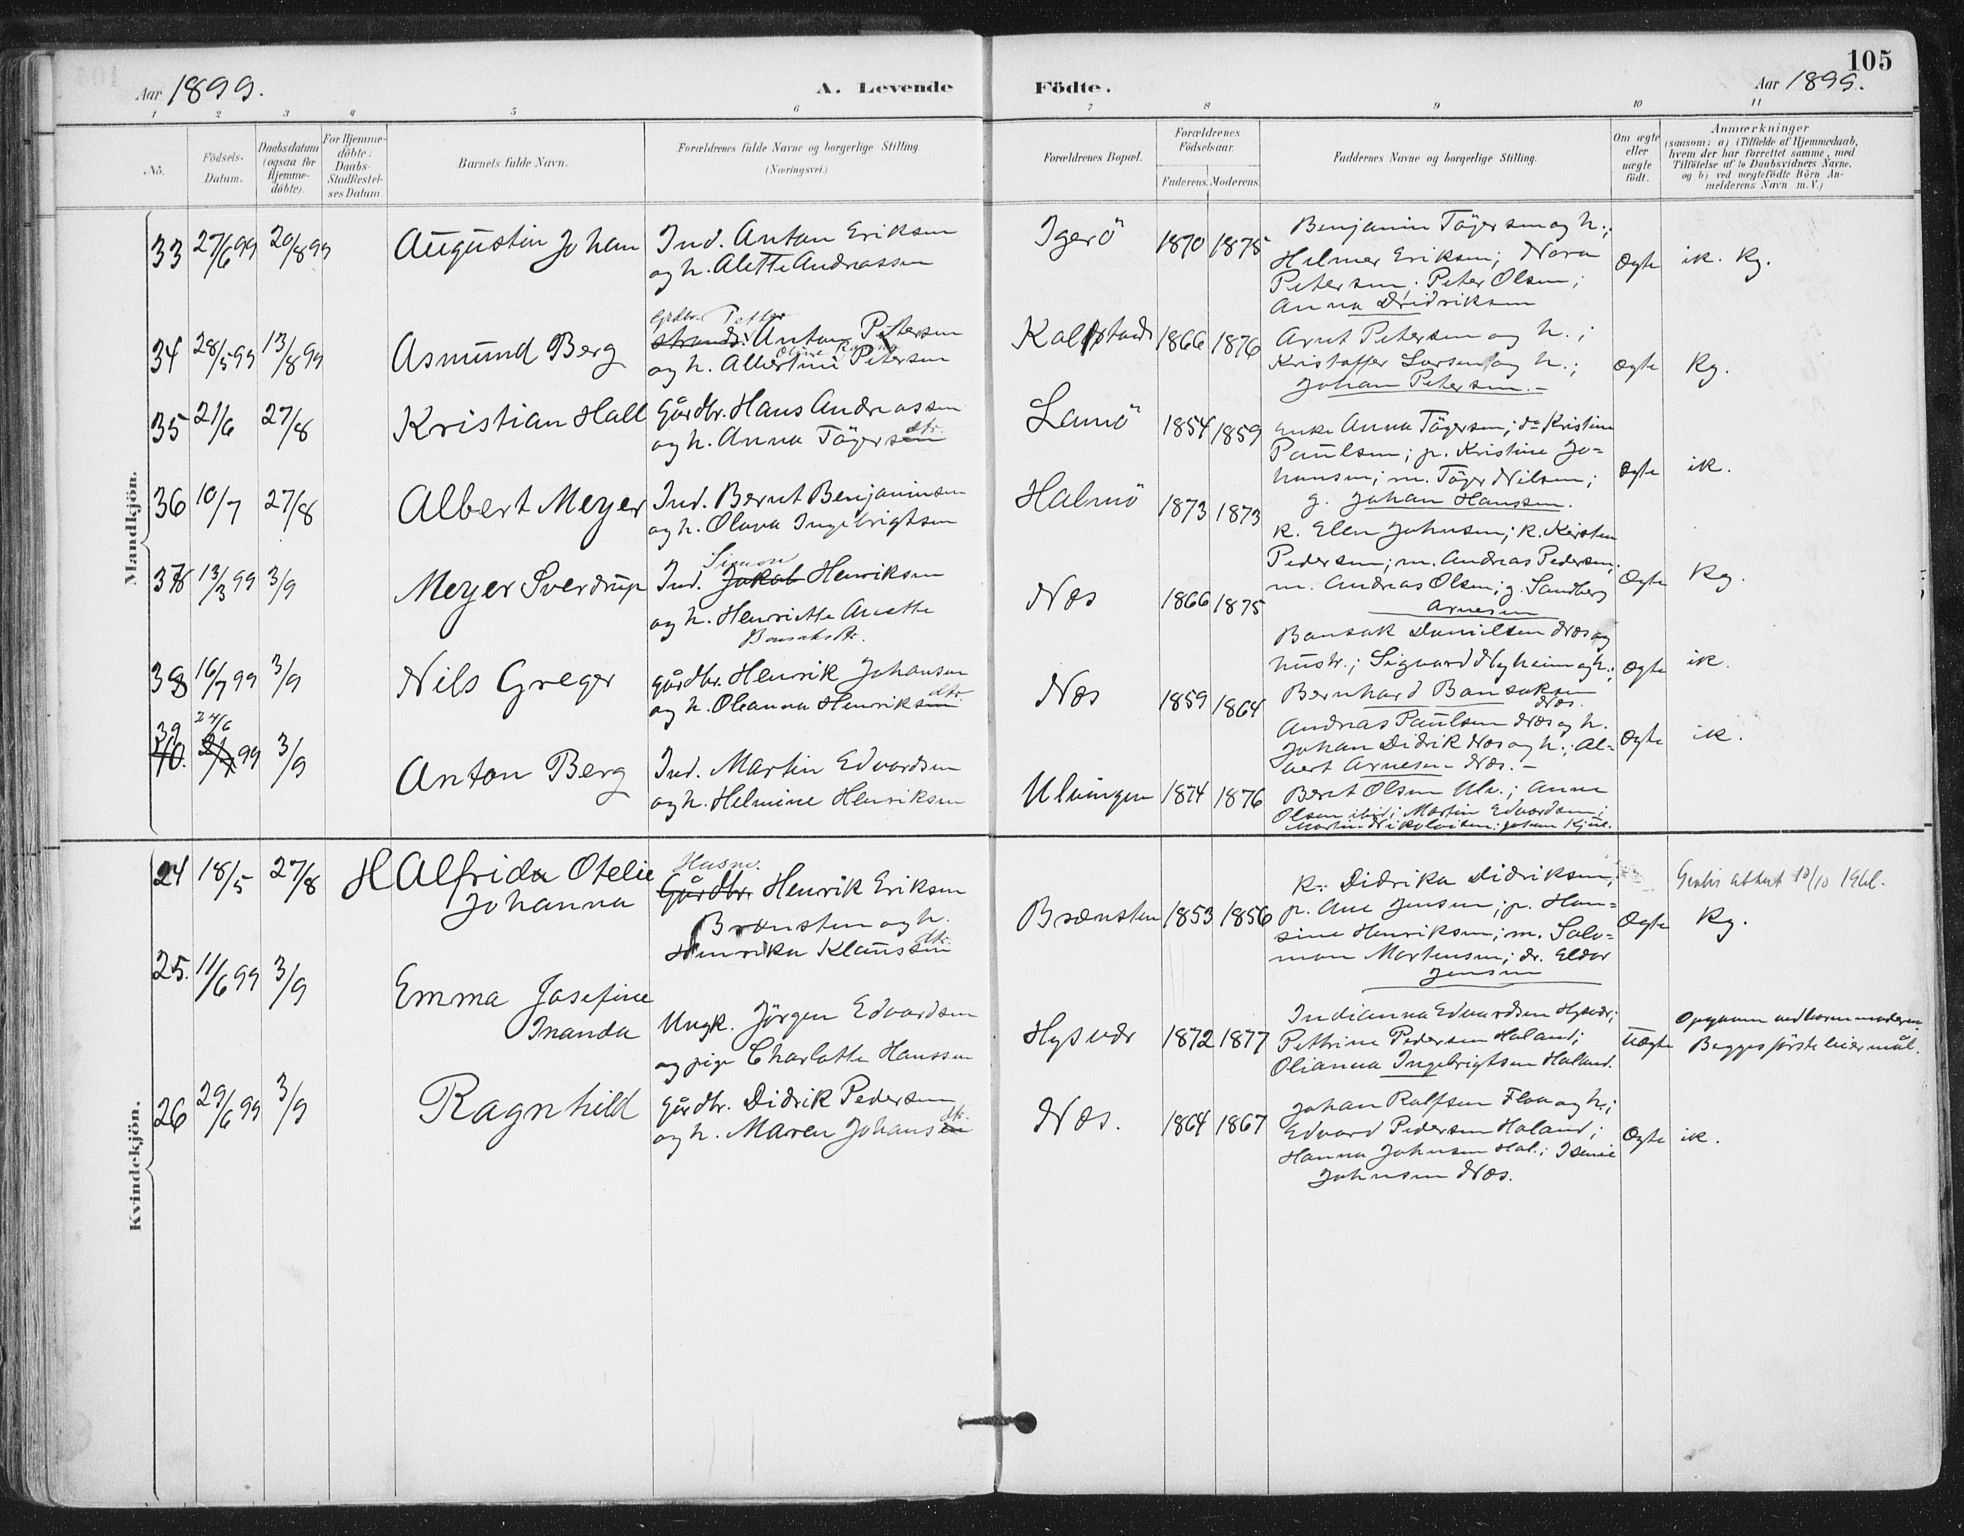 105
Aar 1899.
A. Levende Födte.
Aar 1899.
1 2 3 4 5 6 7 8 9 10 11
No.
Födsels-Datum.
Daabsdatum (ogsaa for Hjemme-döbte).
For Hjemme-döbte: Daabs-Stadfæstel-ses Datum.
Barnets fulde Navn.
Forældrenes fulde Navne og borgerlige Stilling. (Næringsvei.)
Forældrenes Bopæl.
Forældrenes Födselsaar.
Faderens. Moderens.
Faddernes Navne og borgerlige Stilling.
Om ægte eller uægte födt.
Anmærkninger
(saasom: a) i Tilfælde af Hjemmedaab,
hvem der har forrettet samme, med
Tilföielse af to Daabsvidners Navne.
og b) ved uægtefödte Börn An-
melderens Navn m. V.)
Mandkjön.
33 27/6 99 20/8 99 Augustin Johan
Ind. Anton Eriksen
og h. Alette Andreassen
Igerö 1870 1875
Benjamin Tögersen og h.;
Helmer Eriksen; Nora
Petersen; Peter Olsen;
Anna Didriksen
Ægte ik. Kg.
34 28/5 99 13/8 99 Asmund Berg
Grdbr. Petter
Strands. Anton Petersen
og h. Albertine Petersen
1866 1876
Arnt Petersen og h.;
Kristoffer Larsen og h.;
Johan Petersen.-
Ægte Kg.
35 21/6 27/8 Kristian Hall
Gårdbr. Hans Andreassen
og h. Anna Tögersen dtr.
Lamö 1854 1859
Enke Anna Tögersen; do Kristine
Paulsen; p. Kristine Jo-
hansen; m. Töger Nilsen;
g. Johan Hanssen.
Ægte ik.
36 10/7 27/8 Albert Meyer
Ind. Bernt Benjaminsen
og h. Olava Ingebrigtsen
Halmö 1873 1873
k. Ellen Johnsen; k. Kirsten
Pedersen; m. Andreas Pedersen;
m. Andreas Olsen; g. Sandberg
Arnesen
Ægte Kg.
37 13/3 99 3/9 Meyer Sverdrup
Simon
Ind. Jakob Henriksen
og h. Henriette Anette
Bansaksdtr.
Næs 1866 1875
Bansak Danielsen Næs og
hustr.; Sigvard Nyheim og h.;
Bernhard Bansaksen
Næs.
Ægte ik.
38 16/7 99 3/9 Nils Greger
Gårdbr. Henrik Johansen
og h. Oleanna Henriksen dtr.
Næs 1859 1864
Andreas Paulsen Næs og h.
Johan Didrik Næs og h.; Al-
bert Arnesen Næs.-
Ægte ik.
39
40. 24/6 99 3/9 Anton Berg
Ind. Martin Edvardsen
og h. Helmine Henriksen
Ulvingen 1874 1876
Berit Olsen Ulv.; Anne
Olsen ibid; Martin Edvardsen;
Martin Nikolaisen; Johan Kjul.
Kvindekjön.
24 18/5 27/8 H Alfrida Otelie
Johanna
Husm.
Gårdbr. Henrik Eriksen
Brænsten og h.
Henrika Klaussen dtr.
Brænsten 1853 1856
k. Didrika Didriksen;
p. Ane Jensen; p. Han-
sine Henriksen; m. Salo-
mon Mortensen; dr. Eldor
Jensen
Ægte Kg.
Gratis attest 18/10 1961.
25. 11/6 99 3/9 Emma Josefine
Inanda
Ungk. Jörgen Edvardsen
og pige Charlotte Hanssen
Hysvær 1872 1877
Indianna Edvardsen Hysvær;
Pettrine Pedersen Haland;
Olianna Ingebrigtsen Haland.
Uægte
Opgiven ved barnemoderen.
Begges förste leiermål.
26 29/6 99 3/9 Ragnhild
Gårdbr. Didrik Pedersen
og h. Maren Johansen dtr.
Næs. 1864 1867
Johan Rolfsen Floa og h.;
Edvard Pedersen Haland;
Hanna Johnsen Hal.; Isenie
Johnsen Næs.
Ægte ik.